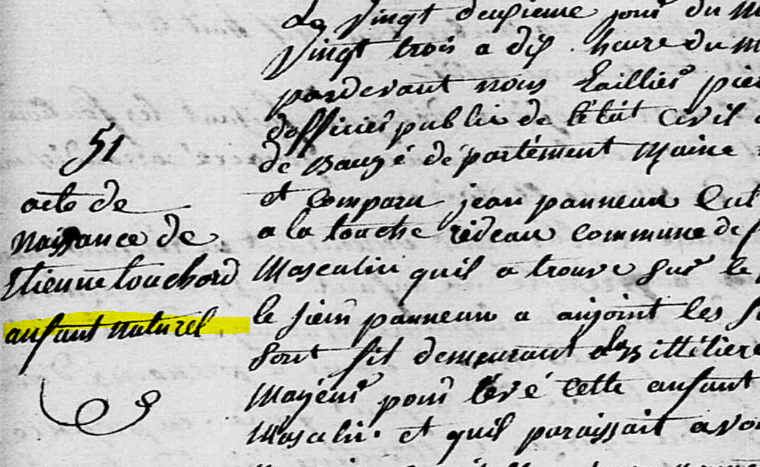 51
acte de
naissance de
Etienne touchard
anfant naturel
Le vingt deusieme jour du m
vingt trois a dix heure du m
pardevant nous pier
dofficier public de létat civil
de Baugé département Maine
et comparu jean panneau cul
a la touche rideau commune de
Masculin quil a trouvé sur le
le jean panneau a anjoint les
sont fil demeurant
pour levé cette anfant
Masculin et quil paroissait avo